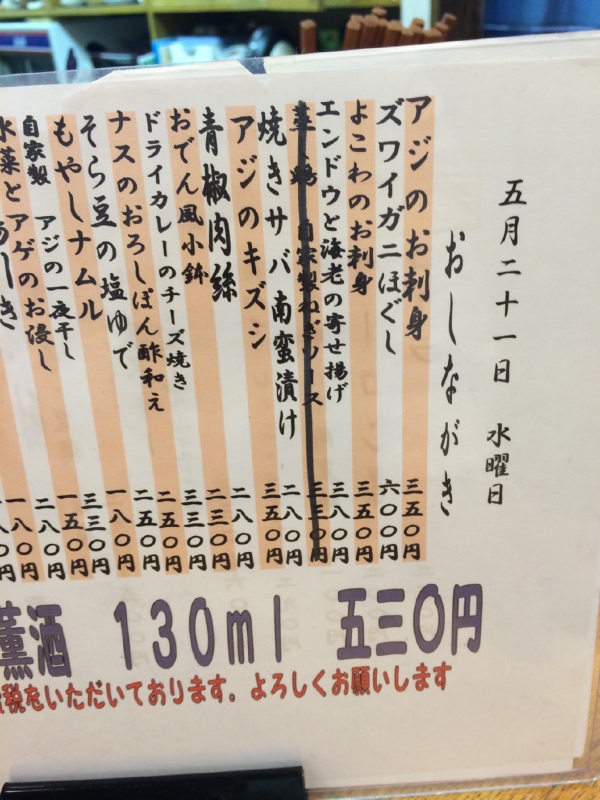 五月二十一日 水曜日
おしながき
アジのお刺身 三五〇円
ズワイガニほぐし 六〇〇円
よこわのお刺身 三五〇円
エンドウと海老の寄せ揚げ 三八〇円
蒸し鶏 自家製ねぎソース 三三〇円
焼きサバ南蛮漬け 二八〇円
アジのキズシ 三五〇円
青椒肉絲 二八〇円
おでん風小鉢 二三〇円
ドライカレーのチーズ焼き 三三〇円
ナスのおろしぽん酢和え 二五〇円
そら豆の塩ゆで 二五〇円
もやしナムル 一八〇円
自家製 アジの一夜干し 三三〇円
水菜とアゲのお浸し 一五〇円
二八〇円
一八〇円
八〇円
薫酒 130ml 五三〇円
税をいただいております。よろしくお願いします